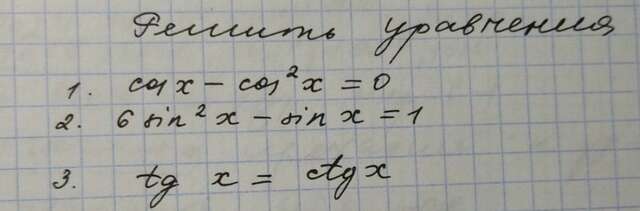 Решить уравнения
1. cos x - cos² x = 0
2. 6 sin² x - sin x = 1
3. tg x = ctg x